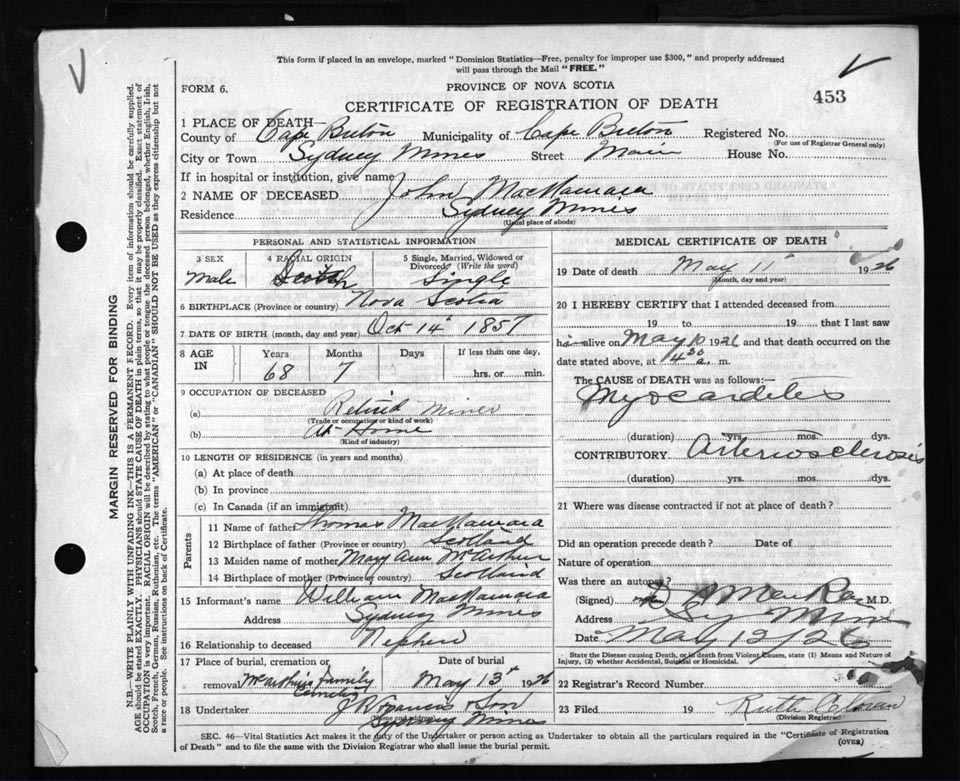 This form if placed in an envelope, marked "Dominion Statistics—Free, penalty for improper use $300," and properly addressed
will pass through the Mail "FREE."
FORM 6.
PROVINCE OF NOVA SCOTIA
CERTIFICATE OF REGISTRATION OF DEATH
453
1 PLACE OF DEATH—
County of Cape Breton Municipality of Cape Breton Registered No.
(For use of Registrar General only)
City or Town Sydney Mines Street Main House No.
If in hospital or institution, give name
2 NAME OF DECEASED John MacNamara
Residence Sydney Mines
(Usual place of abode)
PERSONAL AND STATISTICAL INFORMATION
3 SEX 4 RACIAL ORIGIN 5 Single, Married, Widowed or
Divorced (Write the word)
Male Scotch Single
6 BIRTHPLACE (Province or country) Nova Scotia
7 DATE OF BIRTH (month, day and year) Oct 14th 1857
8 AGE IN Years Months Days If less than one day,
68 7 hrs. or min.
9 OCCUPATION OF DECEASED
(a) Retired Miner
(Trade or occupation or kind of work)
(b) At Home
(Kind of industry)
10 LENGTH OF RESIDENCE (in years and months)
(a) At place of death
(b) In province
(c) In Canada (if an immigrant)
Parents
11 Name of father Thomas MacNamara
12 Birthplace of father (Province or country) Scotland
13 Maiden name of mother Mary Ann McArthur
14 Birthplace of mother (Province or country) Scotland
15 Informant's name William MacNamara
Address Sydney Mines
16 Relationship to deceased Nephew
17 Place of burial, cremation or Date of burial
removal McArthur's Family May 13th 1926
Cemetery
18 Undertaker & Son
(Name and address)
Sydney Mines
MEDICAL CERTIFICATE OF DEATH
19 Date of death May 11th 1926
(Month, day and year)
20 I HEREBY CERTIFY that I attended deceased from
19 to 19 that I last saw
h alive on May 10 1926 and that death occurred on the
date stated above, at 4 30 a. m.
The CAUSE of DEATH was as follows:—
Myocarditis
(duration) yrs. mos. dys.
CONTRIBUTORY. Arteriosclerosis
(duration) yrs. mos. dys.
21 Where was disease contracted if not at place of death?
Did an operation precede death? Date of
Nature of operation
Was there an autopsy?
(Signed) M.D.
Address Syd Mines
Date May 12/26
State the Disease causing Death, or in death from Violent Causes, state (1) Means and Nature of
Injury, (2) whether Accidental, Suicidal or Homicidal.
22 Registrar's Record Number
23 Filed 19 Ruth
(Division Registrar)
SEC. 46—Vital Statistics Act makes it the duty of the Undertaker or person acting as Undertaker to obtain all the particulars required in the "Certificate of Registration
of Death" and to file the same with the Division Registrar who shall issue the burial permit.
(OVER)
MARGIN RESERVED FOR BINDING
N.B.—WRITE PLAINLY WITH UNFADING INK—THIS IS A PERMANENT RECORD. Every item of information should be carefully supplied.
AGE should be stated EXACTLY. PHYSICIANS should STATE CAUSE OF DEATH in plain terms, so that it may be properly classified. Exact statement of
OCCUPATION is very important. RACIAL ORIGIN will be described by stating to what people or tongue the deceased person belonged, whether English, Irish,
Scotch, French, German, Russian, Ruthenian, etc. The terms "AMERICAN" or "CANADIAN" SHOULD NOT BE USED as they express citizenship but not
a race or people. See instructions on back of Certificate.